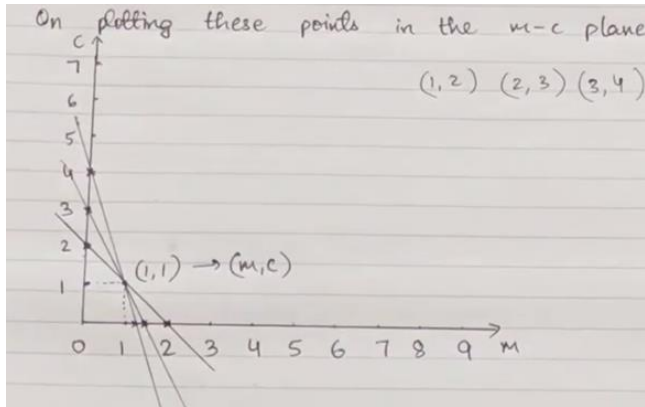 On plotting these points in the m-c plane
C
7
(1,2) (2,3) (3,4)
6
5
4
3
2
(1,1) → (m,c)
1
0 1 2 3 4 5 6 7 8 9 m